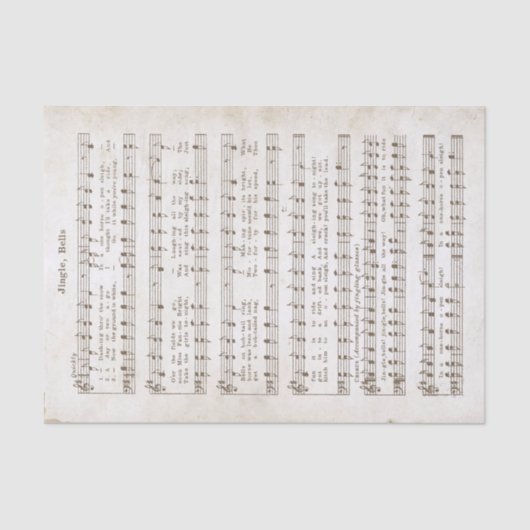 Jingle, Bells
Quickly
1. — Dashing thro' the snow In a one horse o - pen sleigh,
2. A day or two a - go I thought I'd take a ride, And
3. — Now the ground is white, — Go it while you're young, —
O'er the fields we go — Laughing all the way;
soon Miss Fan - nie Bright Was seat - ed by my side; The
Take the girls to - night, And sing this sleighing song; Just
Bells on bob - tail ring, Mak - ing spir - its bright, What
horse was lean and lank, Mis - for - tune seem'd his lot, He
get a bob-tailed nag, Two - for - ty for his speed, Then
fun it is to ride and sing A sleighing song to-night!
got in - to a drift - ed bank, And we, we got up - sot.
hitch him to an o - pen sleigh, And crack! you'll take the lead.
CHORUS (Accompanied by jingling glasses)
Jin-gle, bells! jingle, bells! Jin-gle all the way! Oh, what fun it is to ride
In a one-horse o - pen sleigh! In a one-horse o - pen sleigh!